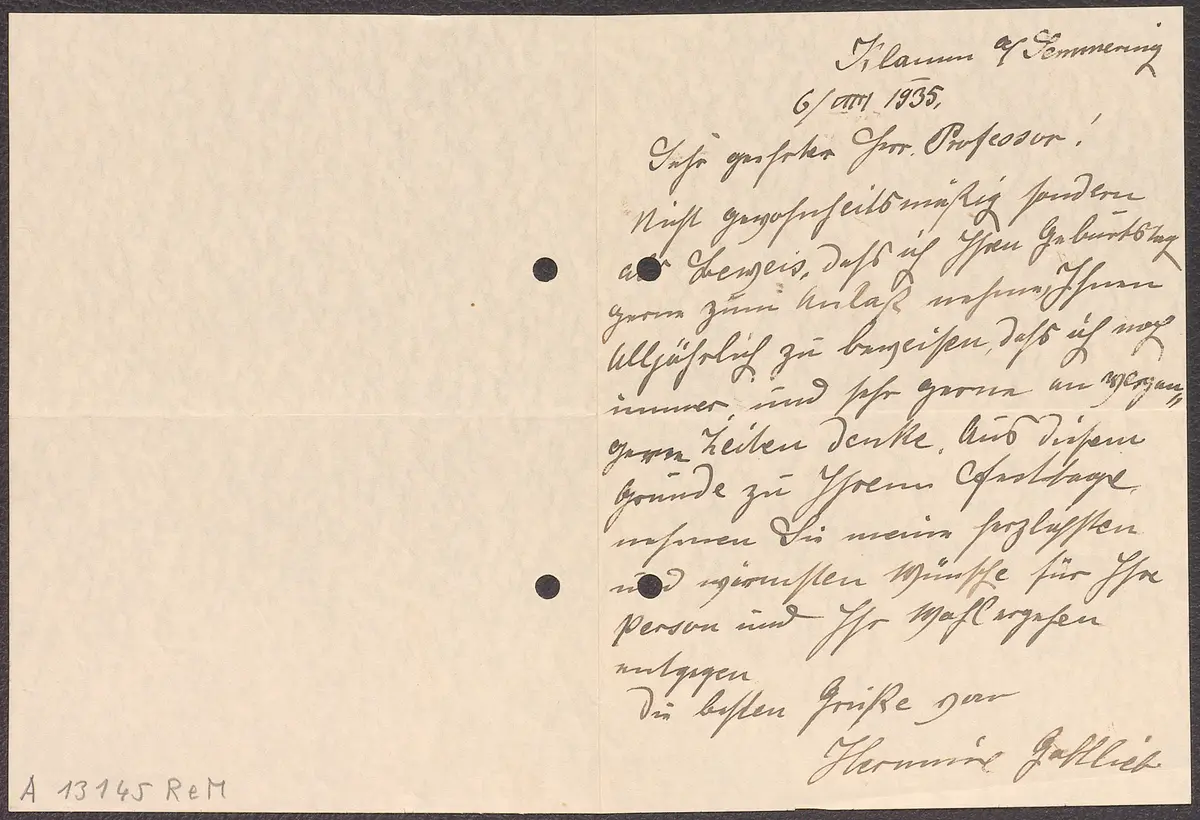 Klamm a/ Semmering
6/VIII 1935.
Sehr geehrter Herr Professor!
Nicht gewohnheitsmäßig sondern
als Beweis, daß ich Ihren Geburtstag
gerne zum Anlaß nehme, Ihnen
Alljährlich zu beweisen, daß ich noch
immer, und sehr gerne an vergan„
gene Zeiten denke. Aus diesem
Grunde zu Ihrem Festtage,
nehmen Sie meine herzlichsten
und wärmsten Wünsche für Ihre
Person und Ihr Wohlergehen
entgegen
Die besten Grüße von
Hermine Gottlieb
A 13145 ReM